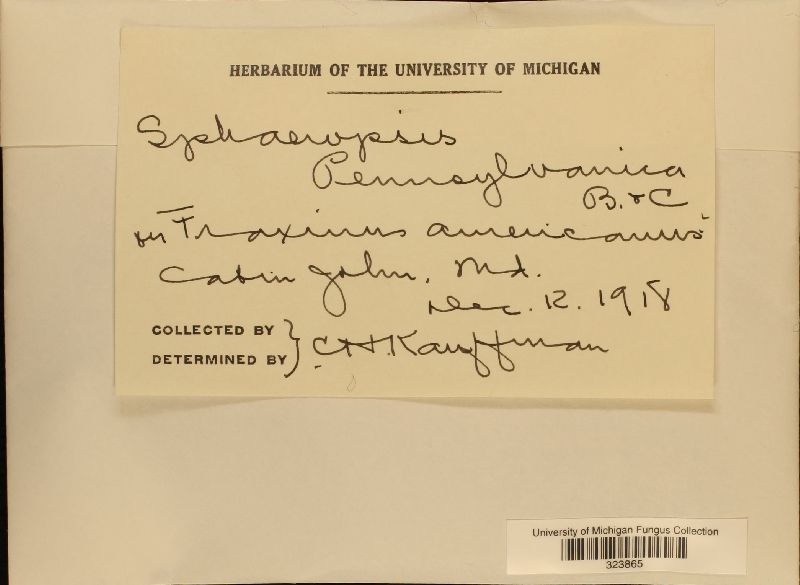 HERBARIUM OF THE UNIVERSITY OF MICHIGAN
Sphaeropsis
Pennsylvanica
B. & C
on Fraxinus americanus
Cabin John, Md.
Dec. 12. 1918
COLLECTED BY
DETERMINED BY } C.H. Kauffman
University of Michigan Fungus Collection
323865